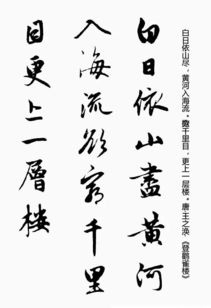 白日依山盡黄河
入海流欲窮千里
目更上一層樓
白日依山尽，黄河入海流。欲穷千里目，更上一层楼。唐·王之涣《登鹳雀楼》